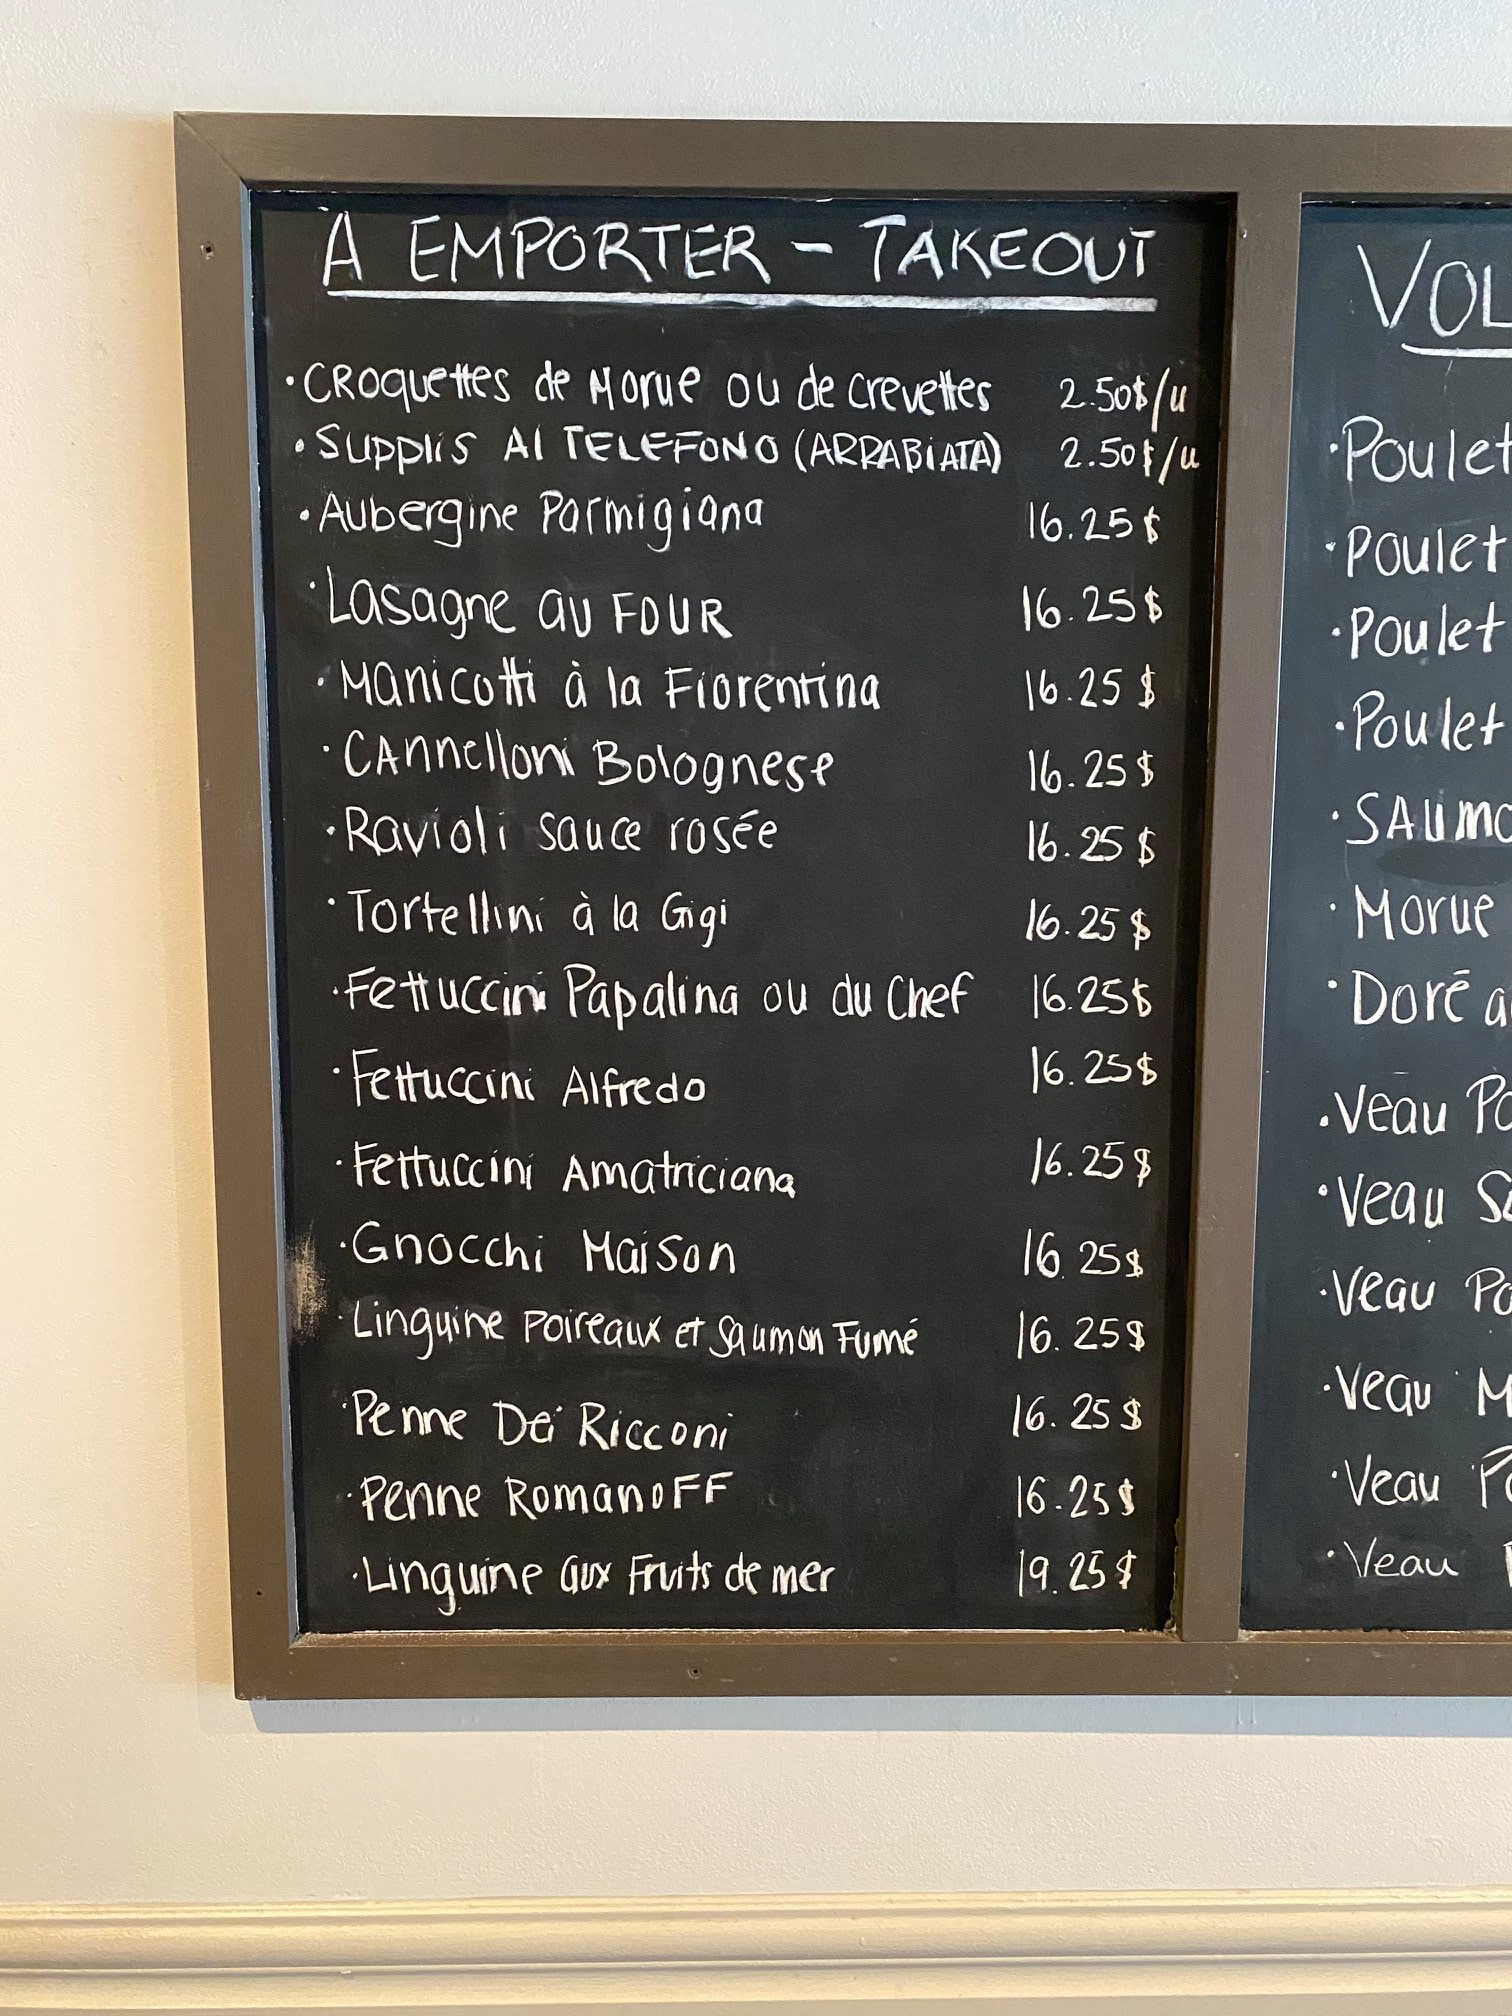 À EMPORTER - TAKEOUT
· CROquettes de Morue ou de crevettes 2.50$/u
· SUPPlis Al TELEFONO (ARRABiATA) 2.50$/u
· Aubergine Parmigiana 16.25$
· Lasagne au FOUR 16.25$
· Manicotti à la Fiorentina 16.25$
· CAnnelloni Bolognese 16.25$
· Ravioli sauce rosée 16.25$
· Tortellini à la Gigi 16.25$
· Fettuccini Papalina ou du Chef 16.25$
· Fettuccini Alfredo 16.25$
· Fettuccini Amatriciana 16.25$
· Gnocchi Maison 16.25$
· Linguine Poireaux et Saumon Fumé 16.25$
· Penne Dei Ricconi 16.25$
· Penne RomanoFF 16.25$
· Linguine aux Fruits de mer 19.25$
VOL
· Poulet
· Poulet
· Poulet
· Poulet
· SAumo
· Morue
· Doré a
· Veau Po
· Veau
· Veau Po
· Veau M
· Veau
· Veau